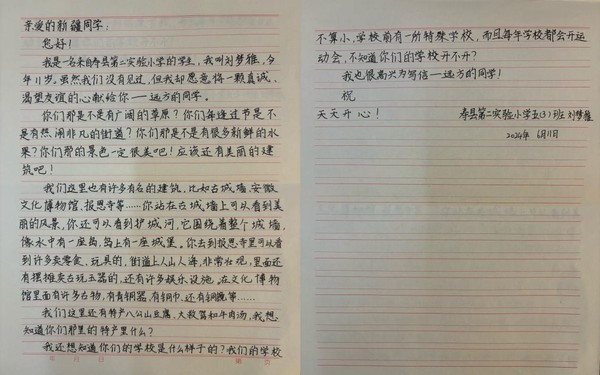 亲爱的新疆同学：
您好！
我是一名来自寿县第二实验小学的学生，我叫刘梦雅，今
年11岁，虽然我们没有见过，但我却愿意将一颗真诚、
渴望友谊的心献给你——远方的同学。
你们那是不是有广阔的草原？你们每逢过节是不
是有热闹非凡的街道？你们那是不是有很多新鲜的水
果？你们那的景色一定很美吧！应该还有美丽的建
筑吧！
我们这里也有许多有名的建筑，比如古城墙、安徽
文化博物馆、报恩寺等……你站在古城墙上可以看到美
丽的风景，你还可以看到护城河，它围绕着整个城墙，
像水中有一座岛，岛上有一座城堡。你去到报恩寺里可以看
到许多卖零食、玩具的，街道上人山人海，非常壮观，里面还
有摆摊卖古玩玉器的，还有许多娱乐设施。在文化博物
馆里面有许多古物，有青铜器，有铜巾，还有铜镜等……
我们这里还有特产八公山豆腐、大救驾和牛肉汤，我想
知道你们那里的特产是什么？
我还想知道你们的学校是什么样子的？我们的学校
不算小，学校前有一所特殊学校，而且每年学校都会开运
动会，不知道你们的学校开不开？
我也很高兴为写信——远方的同学！
祝
天天开心！
寿县第二实验小学五(3)班 刘梦雅
2024年 6月11日